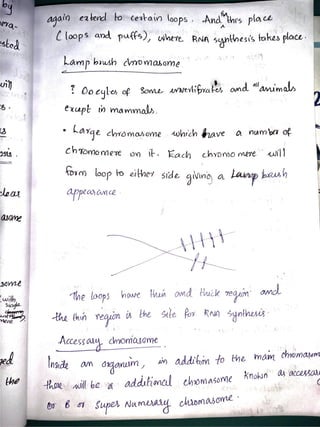 again extend to certain loops. And in this place
(loops and puffs), where RNA synthesis takes place.
Lampbrush chromosome
? Oocytes of some invertibrates and animals
exupt in mammals.
• Large chromosome which have a number of
chromomere on it. Each chromomere will
form loop to either side giving a Lamp bush
appearance.
The loops have thin and thick region and
the thin region is the site for RNA synthesis.
Accessary chromosome
Inside an organism, in addition to the main chromosom
there will be a additional chromosome known as accessar
or B or super Numerary chromosome.
by
sted
will
clear
asome
some
with
single
ged
the